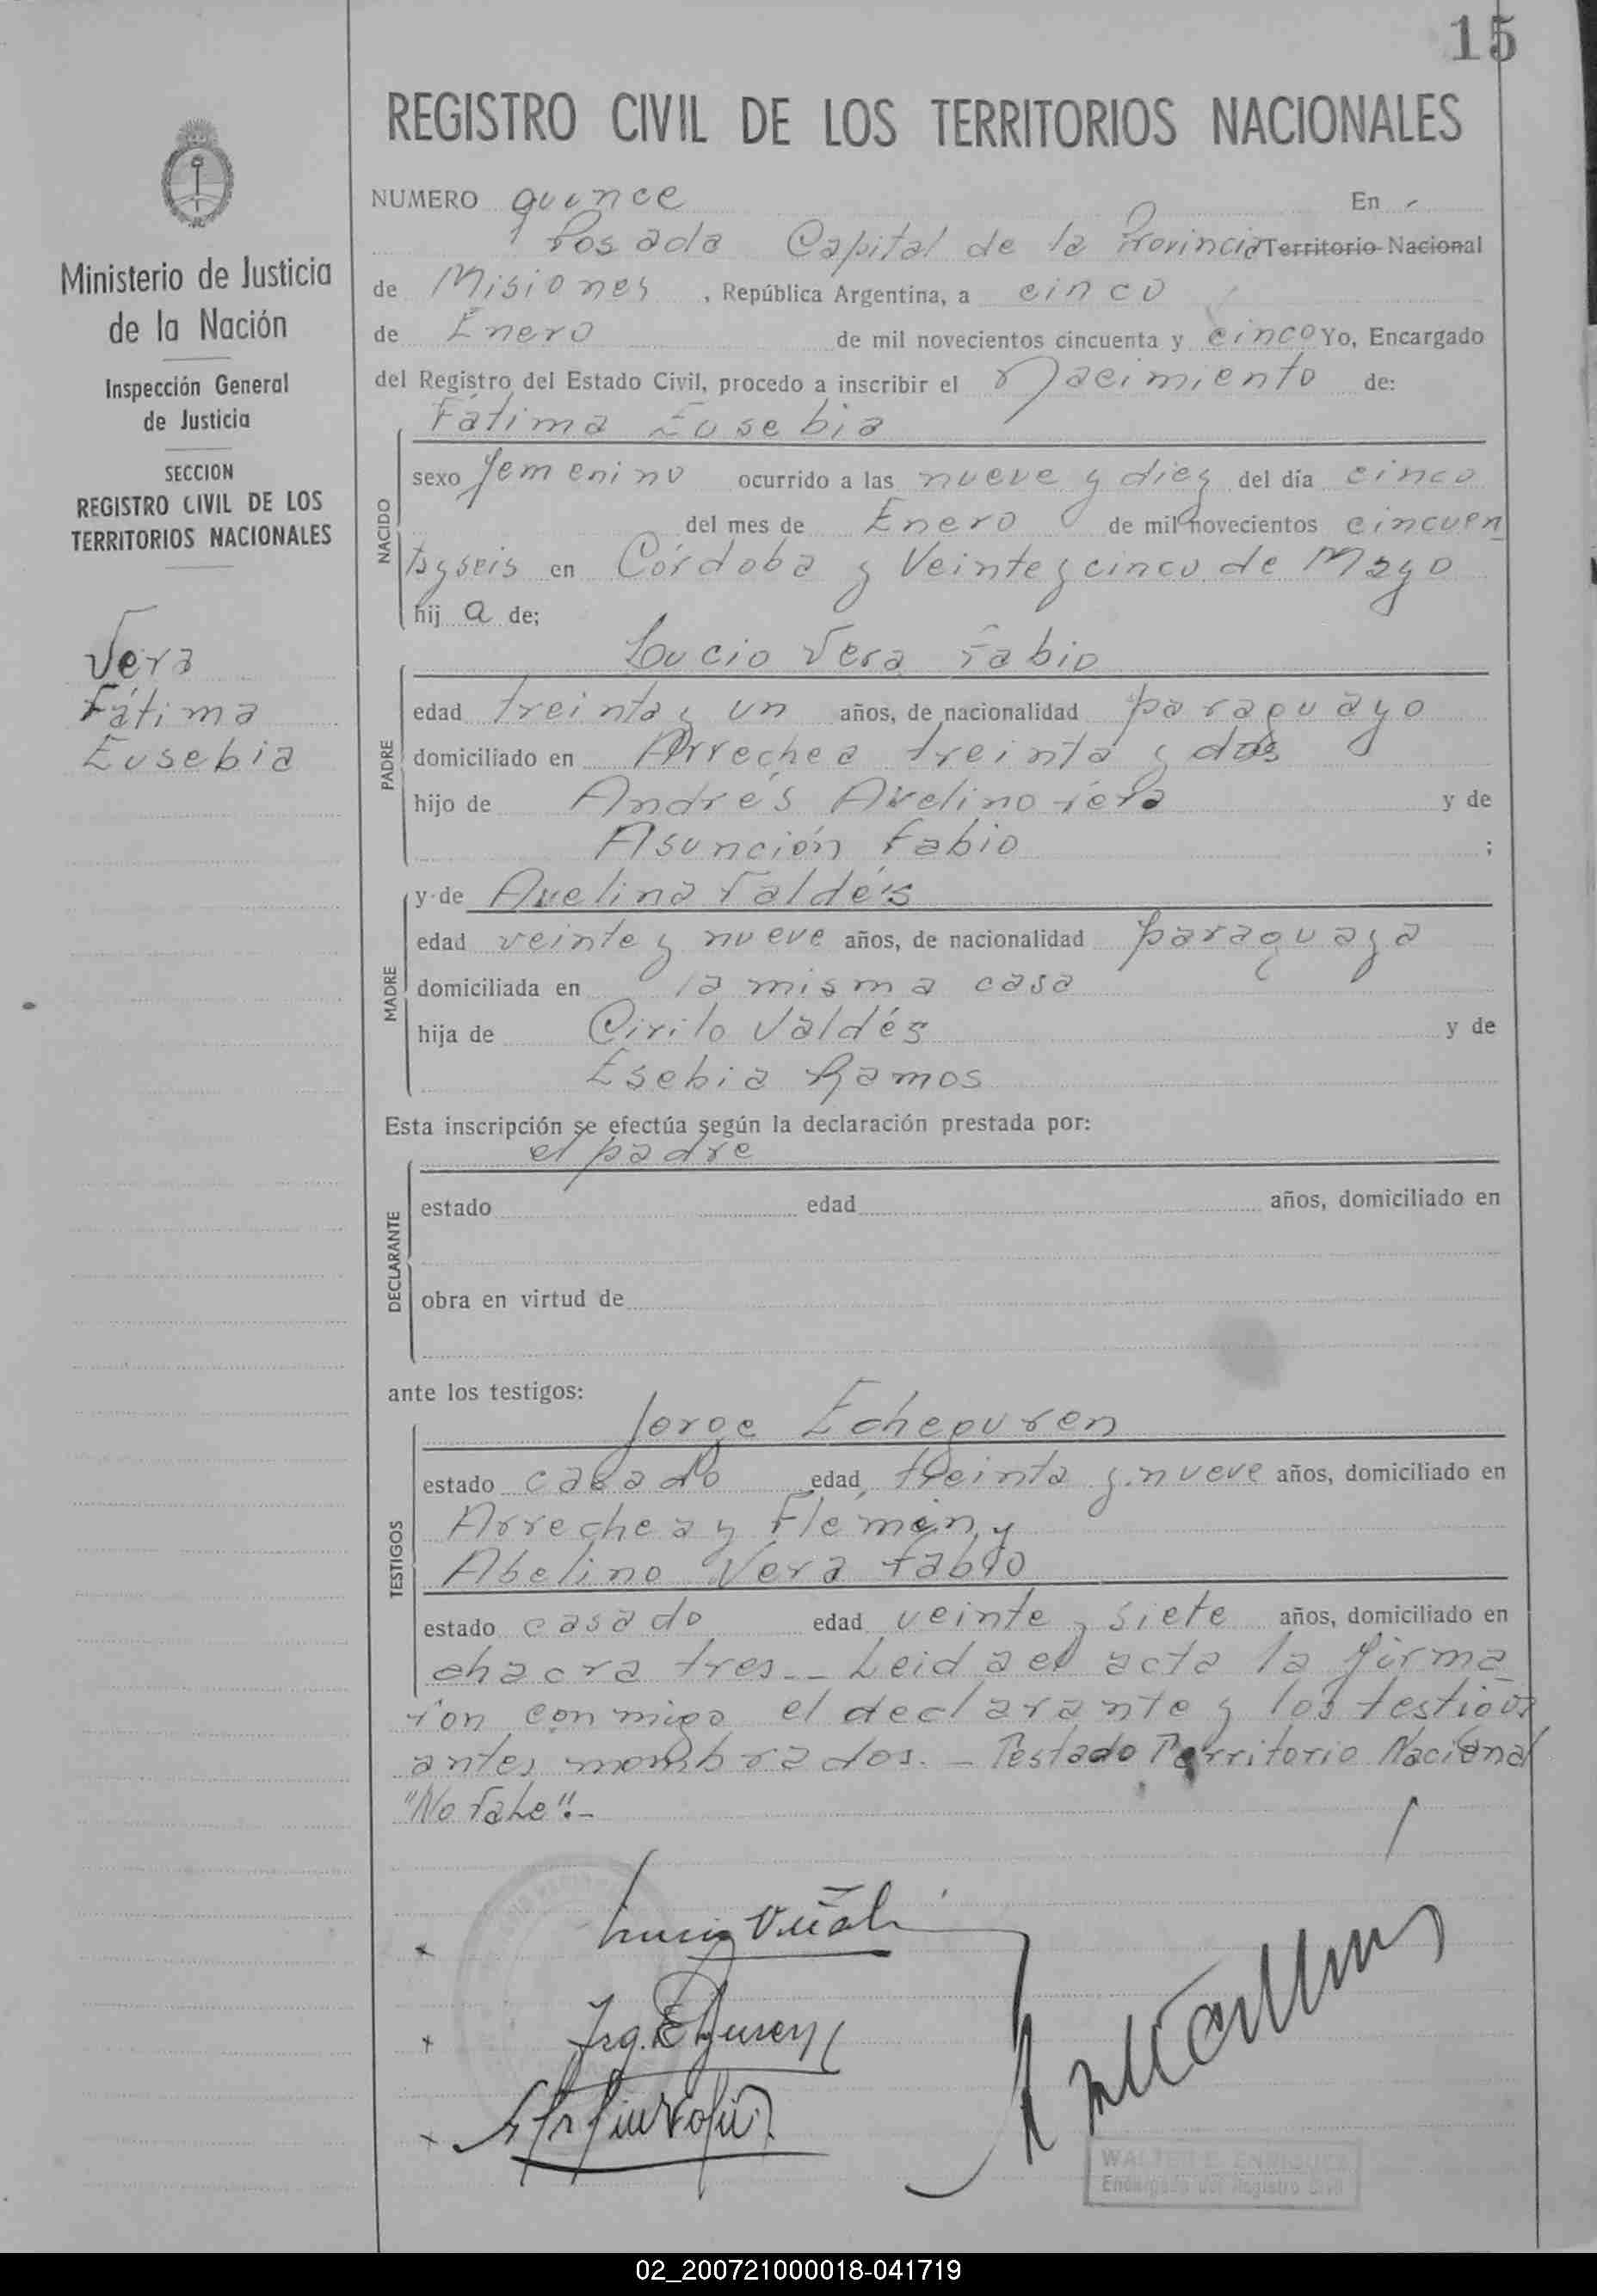 15
REGISTRO CIVIL DE LOS TERRITORIOS NACIONALES
Ministerio de Justicia
de la Nación
Inspección General
de Justicia
SECCION
REGISTRO CIVIL DE LOS
TERRITORIOS NACIONALES
Vera
Fátima
Eusebia
NUMERO quince En
Posada Capital de la Provincia Territorio Nacional
de Misiones, República Argentina, a cinco
de Enero de mil novecientos cincuenta y cinco Yo, Encargado
del Registro del Estado Civil, procedo a inscribir el Nacimiento de:
Fátima Eusebia
NACIDO
sexo femenino ocurrido a las nueve y diez del día cinco
del mes de Enero de mil novecientos cincuen
tayseis en Córdoba y Veinte y cinco de Mayo
hij a de;
Lucio Vera Fabio
PADRE
edad treinta y un años, de nacionalidad paraguayo
domiciliado en Arrechea treinta y dos
hijo de Andrés Avelino Vera y de
Asunción Fabio ;
y de Avelina Valdés
MADRE
edad veinte y nueve años, de nacionalidad paraguaya
domiciliada en la misma casa
hija de Cirilo Valdés y de
Esebia Ramos
Esta inscripción se efectúa según la declaración prestada por:
el padre
DECLARANTE
estado edad años, domiciliado en
obra en virtud de
ante los testigos:
Jorge Echeguren
TESTIGOS
estado casado edad treinta y nueve años, domiciliado en
Arrechea y Flemin, y
Abelino Vera Fabio
estado casado edad veinte y siete años, domiciliado en
chacra tres.- Leida el acta la firma
ron conmigo el declarante y los testigos
antes nombrados.- Testado Territorio Nacional
"No Vale".-
WALTER E. ENRIQUEZ
Encargado del Registro Civil
02_200721000018-041719